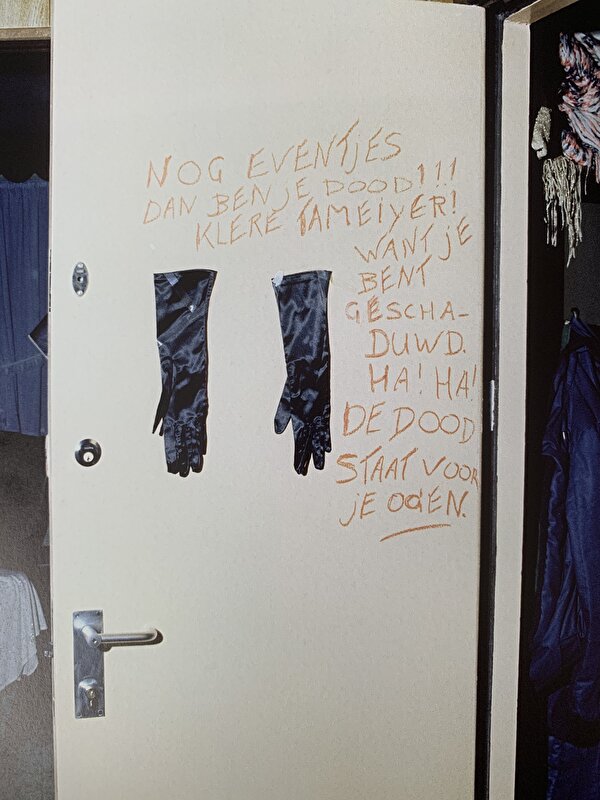 NOG EVENTJES
DAN BEN JE DOOD!!!
KLERE TAMEIYER!
WANT JE
BENT
GESCHA-
DUWD.
HA! HA!
DE DOOD
STAAT VOOR
JE OGEN.